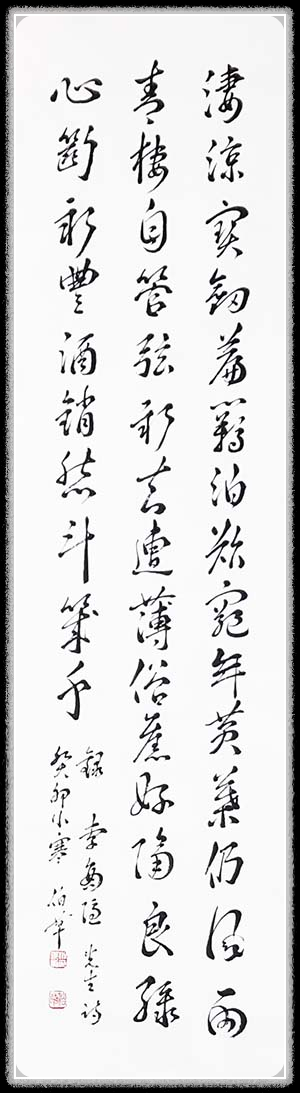 淒涼寶劍篇羈泊欲窮年黃葉仍風雨
青樓自管弦新知遭薄俗舊好隔良緣
心斷新豐酒銷愁斗幾千
錄 李商隱 先生詩
癸卯小寒